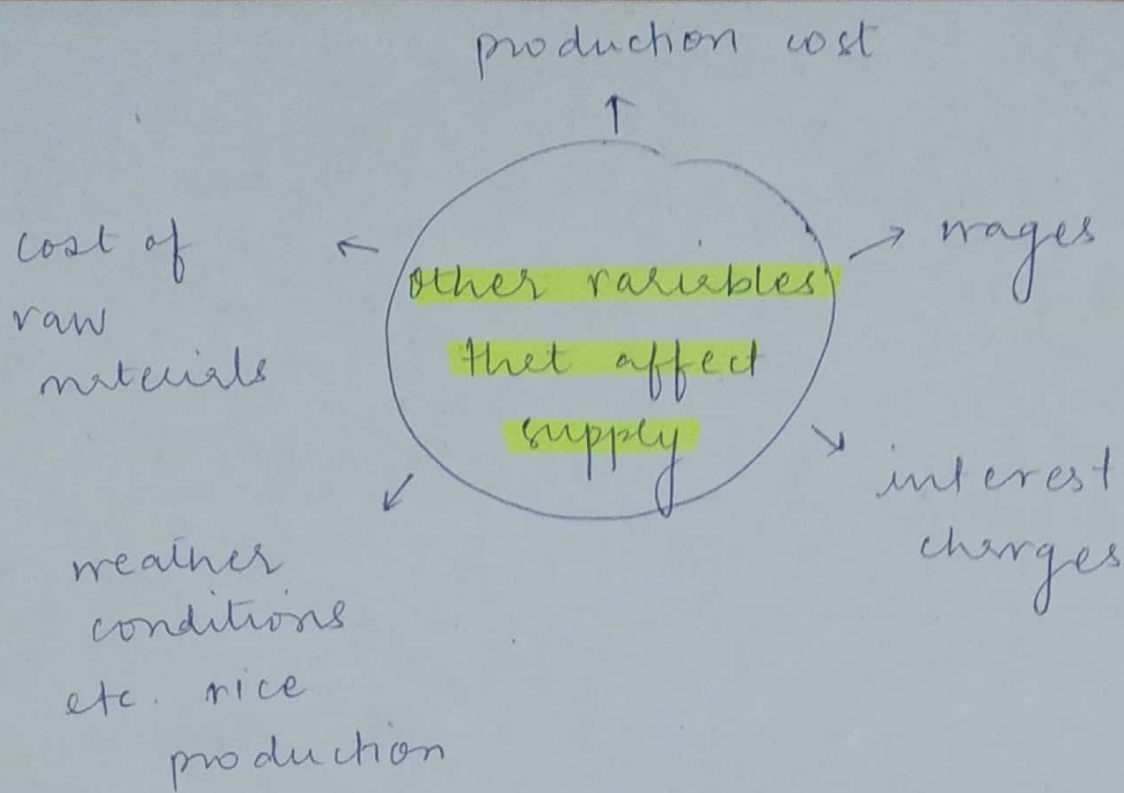 production cost
cost of
raw
materials
other variables
that affect
supply
wages
interest
charges
weather
conditions
etc. rice
production